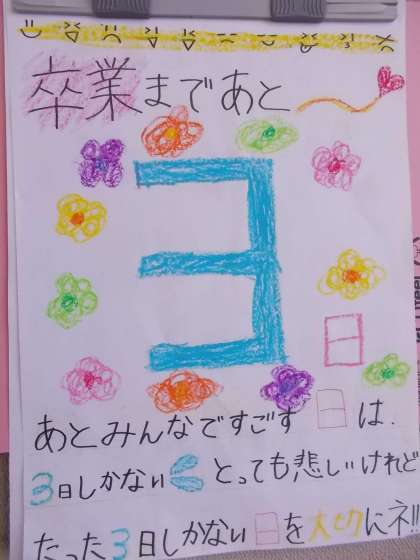 卒業まであと
3日
あとみんなですごす日は、
3日しかない とっても悲しいけれど
たった3日しかない日を大切にネ!!